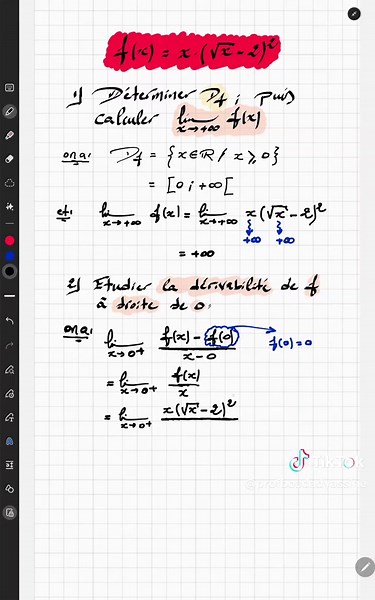 f(x) = x (√x - 2)²
1) Déterminer Df ; puis
calculer lim x→+∞ f(x)
on a: Df = {x ∈ ℝ / x ⩾ 0}
= [0 ; +∞[
et: lim x→+∞ f(x) = lim x→+∞ x (√x - 2)²
+∞ +∞
= +∞
2) Etudier la dérivabilité de f
à droite de 0.
on a: lim x→0⁺ (f(x) - f(0)) / (x - 0) f(0) = 0
= lim x→0⁺ f(x) / x
= lim x→0⁺ x (√x - 2)²
TikTok